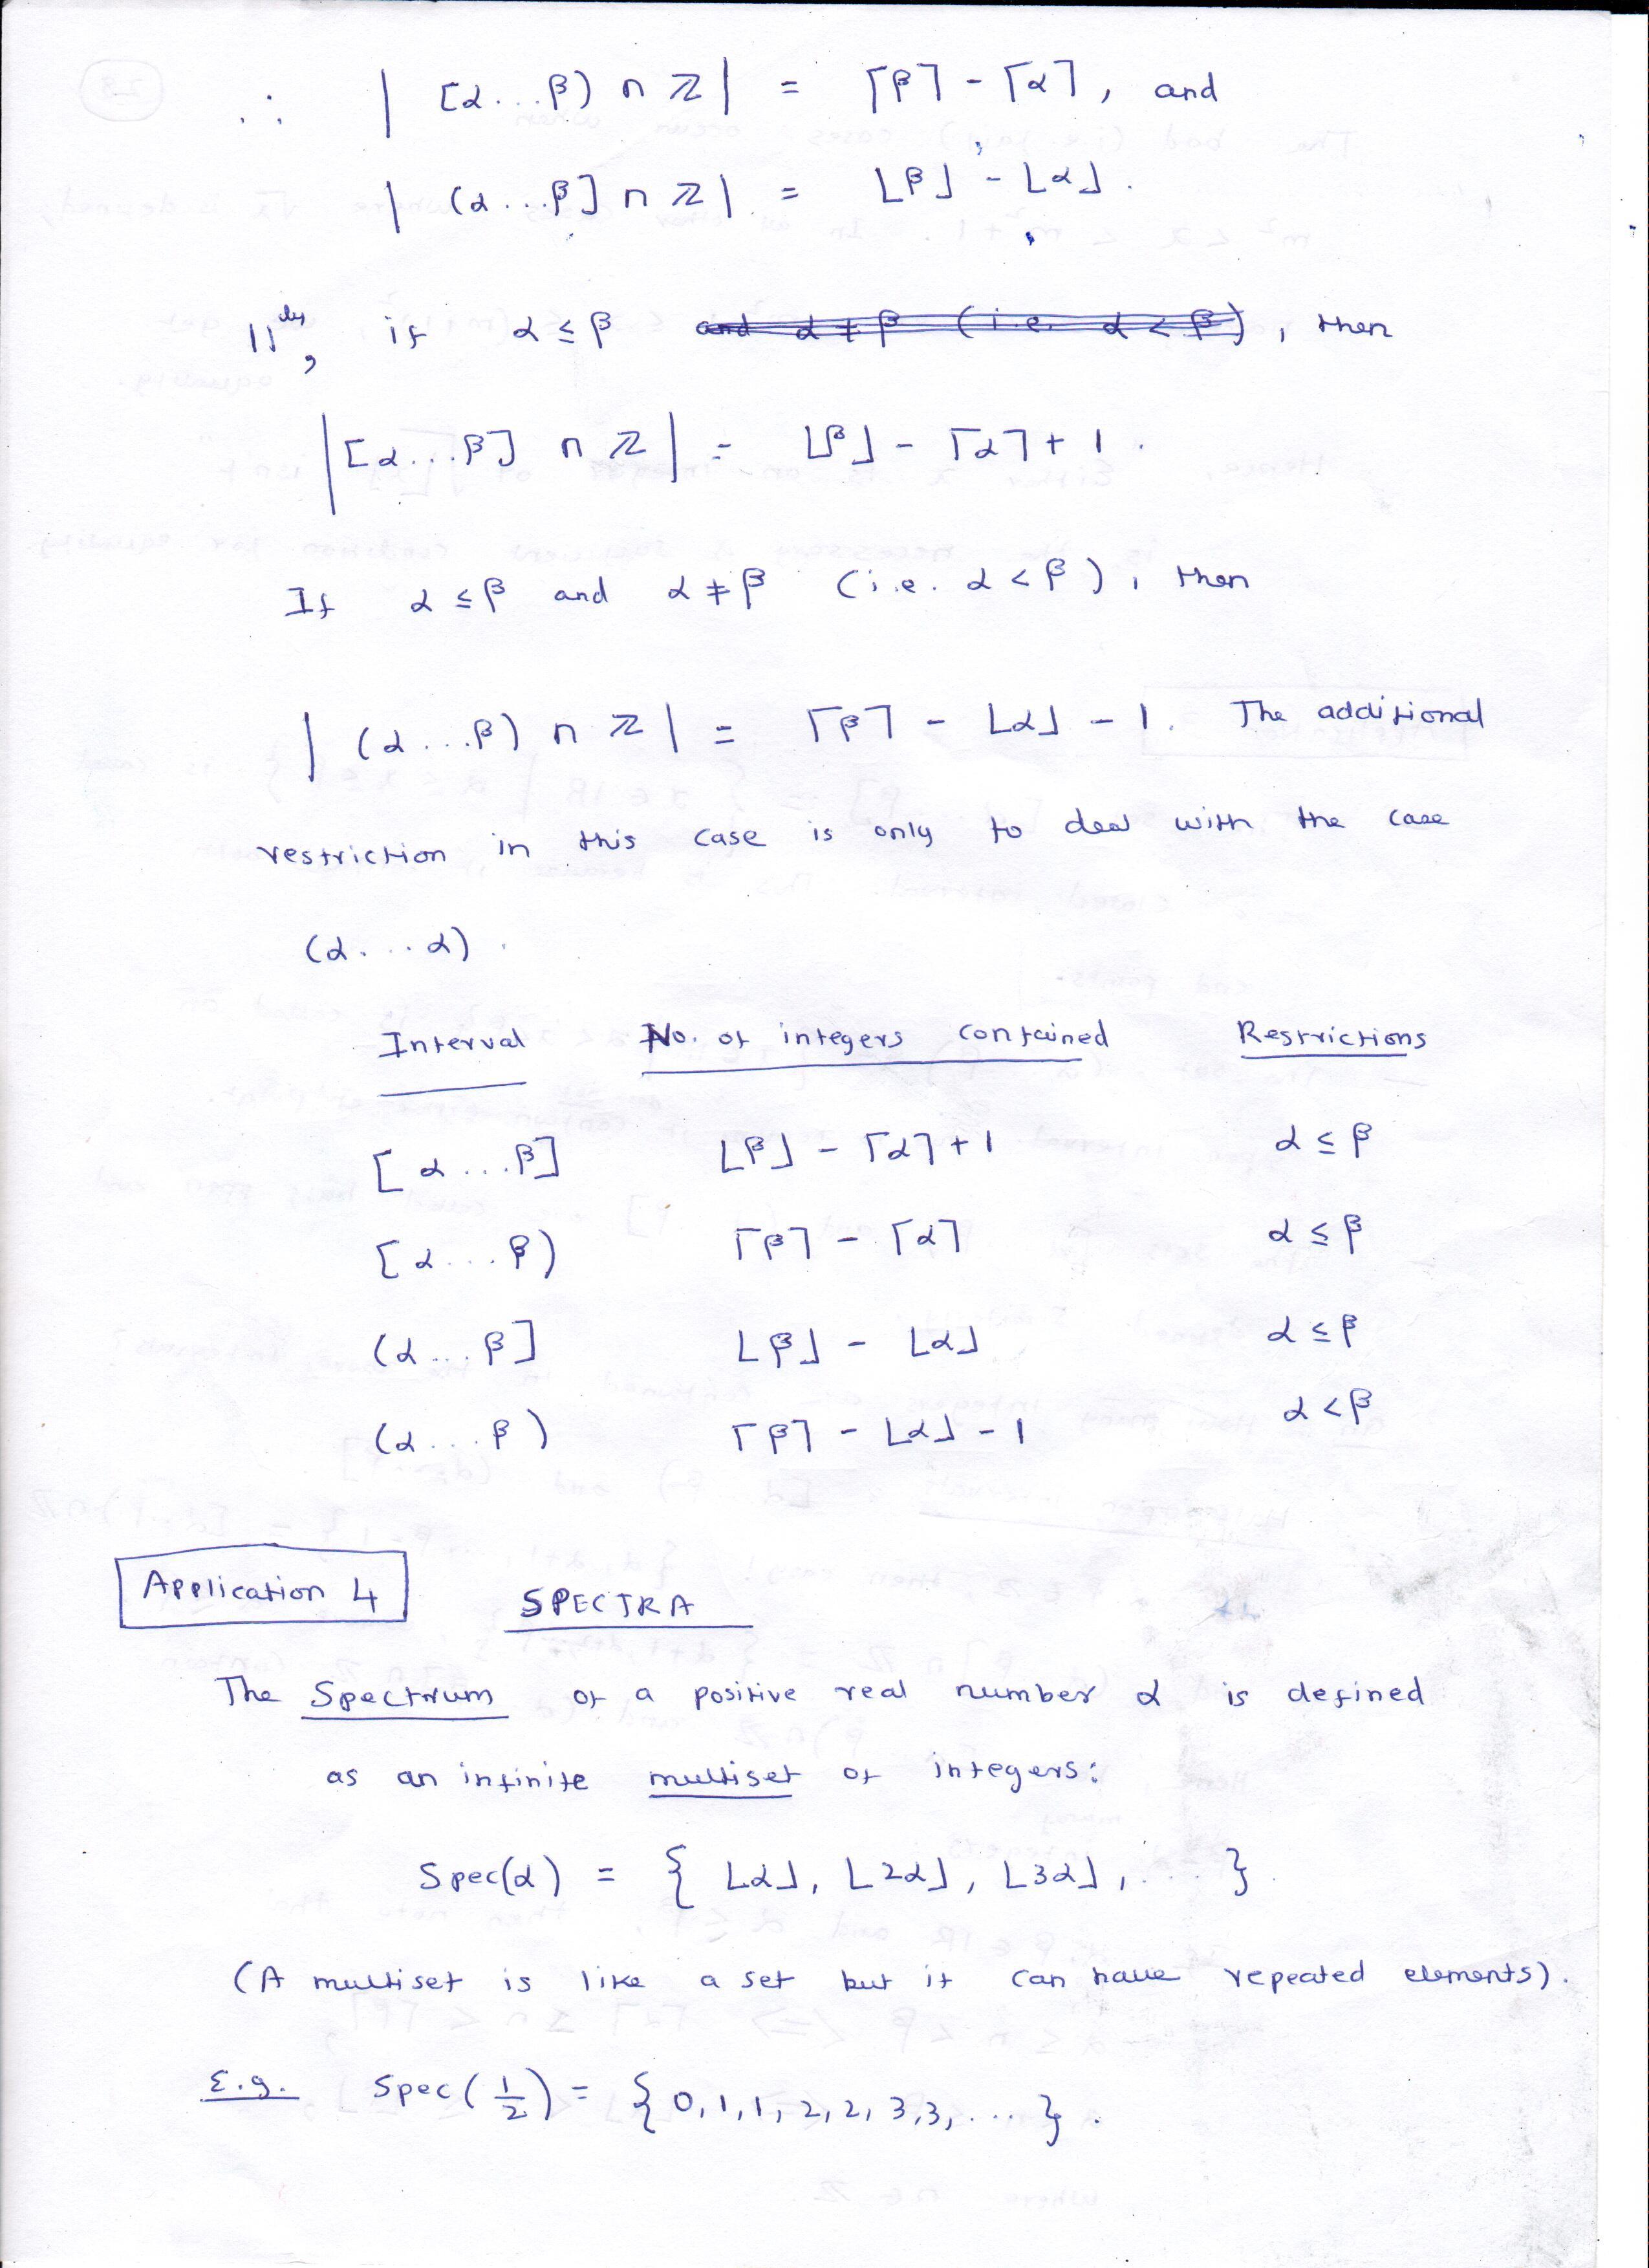 ∴ | [α...β) ∩ ℤ | = ⌈β⌉ - ⌈α⌉, and
| (α...β] ∩ ℤ | = ⌊β⌋ - ⌊α⌋.
||ly, if α ≤ β and α ≠ β (i.e. α < β), then
| [α...β] ∩ ℤ | = ⌊β⌋ - ⌈α⌉ + 1.
If α ≤ β and α ≠ β (i.e. α < β), then
| (α...β) ∩ ℤ | = ⌈β⌉ - ⌊α⌋ - 1. The additional
restriction in this case is only to deal with the case
(α...α).
Interval No. of integers contained Restrictions
[α...β] ⌊β⌋ - ⌈α⌉ + 1 α ≤ β
[α...β) ⌈β⌉ - ⌈α⌉ α ≤ β
(α...β] ⌊β⌋ - ⌊α⌋ α ≤ β
(α...β) ⌈β⌉ - ⌊α⌋ - 1 α < β
Application 4 SPECTRA
The Spectrum of a positive real number α is defined
as an infinite multiset of integers:
Spec(α) = { ⌊α⌋, ⌊2α⌋, ⌊3α⌋, ... }.
(A multiset is like a set but it can have repeated elements).
E.g. Spec(1/2) = {0, 1, 1, 2, 2, 3, 3, ... }.